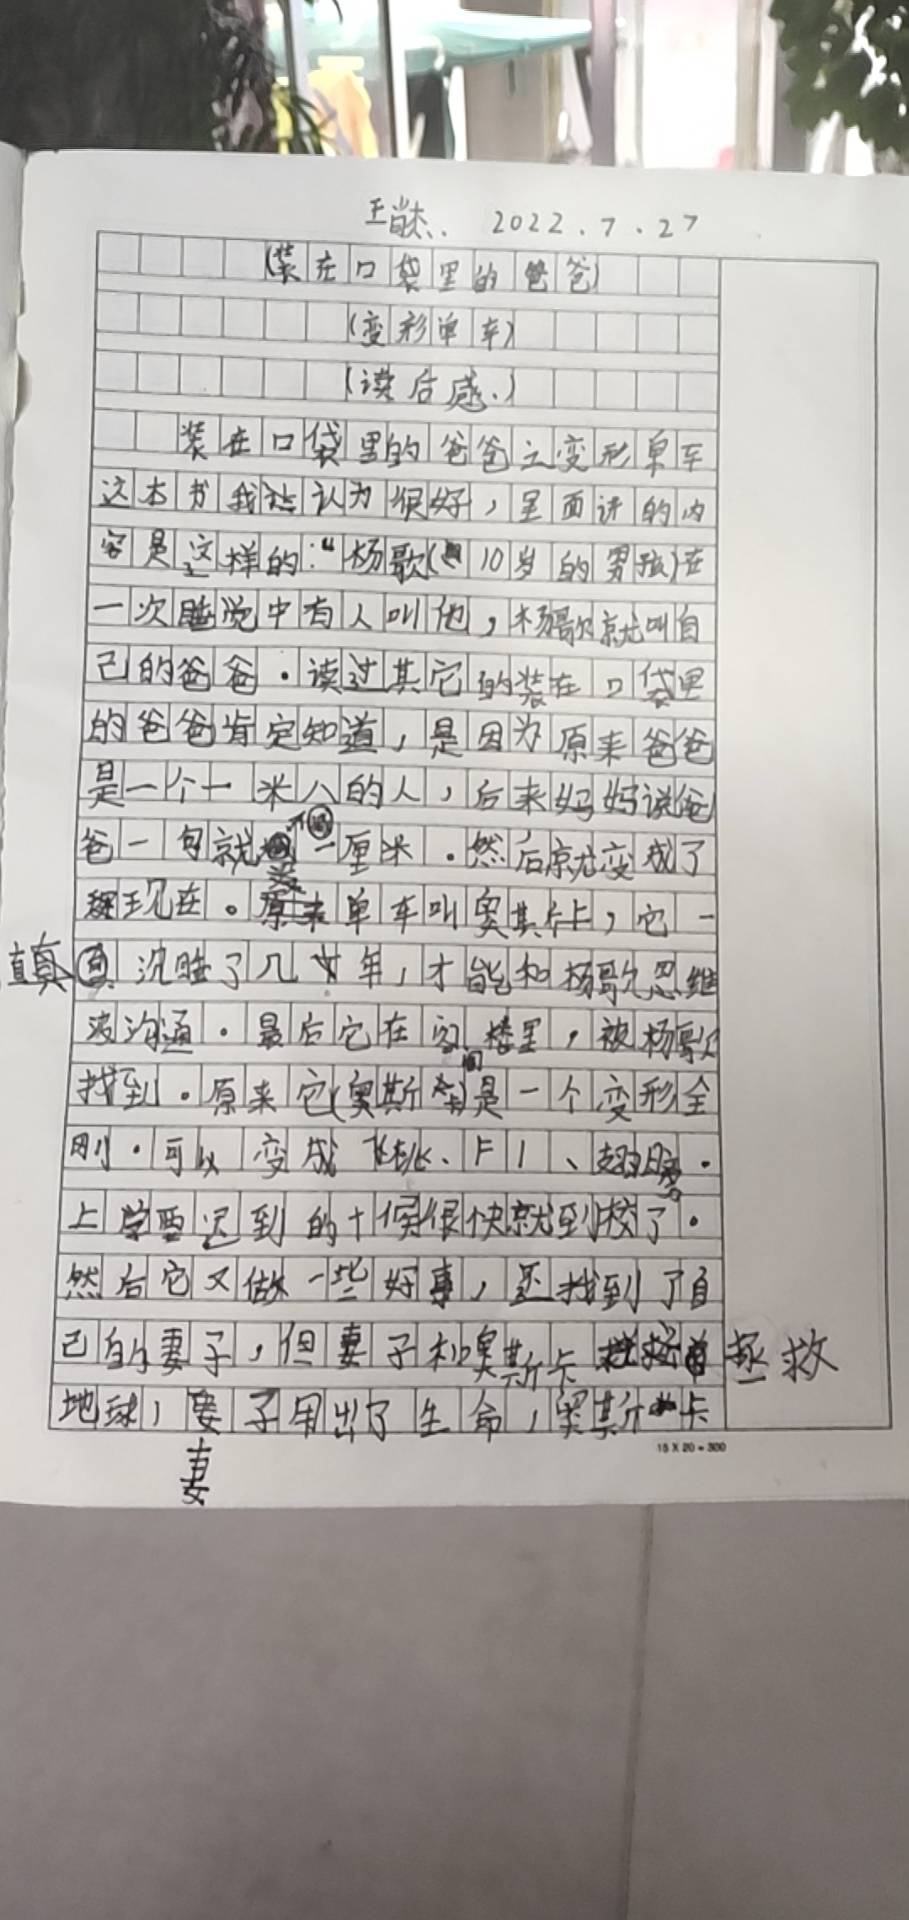 2022.7.27
(装在口袋里的爸爸)
(变形单车)
(读后感.)
装在口袋里的爸爸之变形单车
这本书我认为很好,里面讲的内
容是这样的:“杨歌(10岁的男孩)在
一次睡觉中有人叫他,杨歌就叫自
己的爸爸.读过其它的装在口袋里
的爸爸肯定知道,是因为原来爸爸
是一个一米八的人,后来妈妈说爸
爸一句就一厘米.然后就变成了
现在。原来单车叫奥其卡,它一
真 沉睡了几十年,才能和杨歌思维
波沟通.最后它在楼里,被杨歌
间
找到.原来它(奥斯卡)是一个变形全
刚.可以变成飞机、门、翅膀.
上学要迟到的十候很快就到校了.
然后它又做一些好事,还找到了自
己的妻子,但妻子和奥斯卡 拯救
地球,妻子用出了生命,奥斯卡
妻
15 X 20 = 300